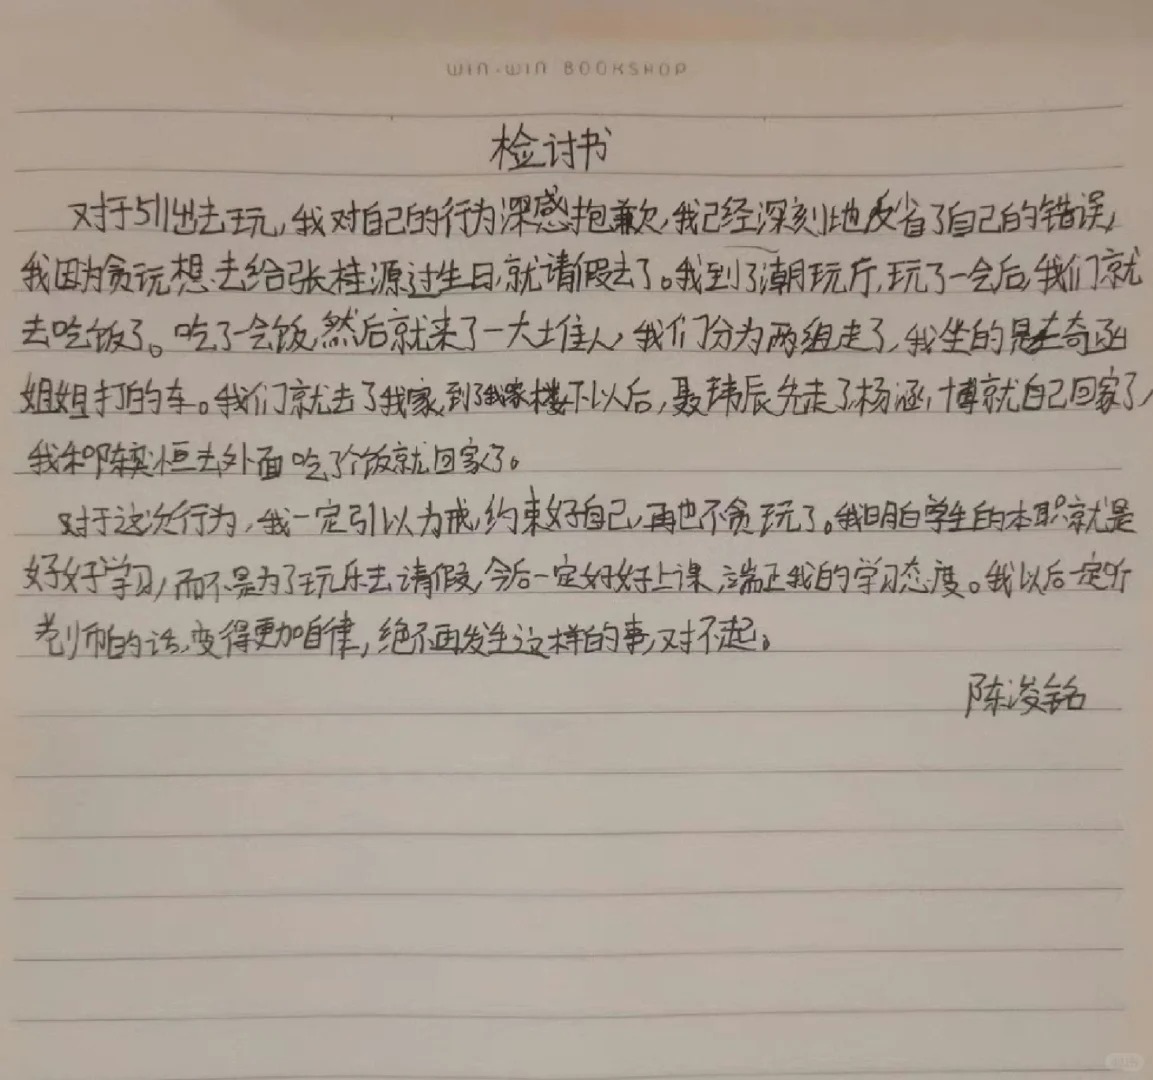 WIN-WIN BOOKSHOP
检讨书
对于511出去玩,我对自己的行为深感抱歉,我已经深刻地反省了自己的错误,
我因为贪玩想去给张桂源过生日,就请假去了。我到了潮玩厅,玩了一会后,我们就
去吃饭了。吃了会饭,然后就来了一大堆人,我们分为两组走了,我坐的是奇函
姐姐打的车。我们就去了我家,到了我家楼下以后,聂玮辰先走了杨涵,博就自己回家了,
我和陈奕恒去外面吃了个饭就回家了。
对于这次行为,我一定引以为戒,约束好自己,再也不贪玩了。我明白学生的本职就是
好好学习,而不是为了玩乐去请假,今后一定好好上课,端正我的学习态度。我以后一定听
老师的话,变得更加自律,绝不再发生这样的事,对不起。
陈浚铭